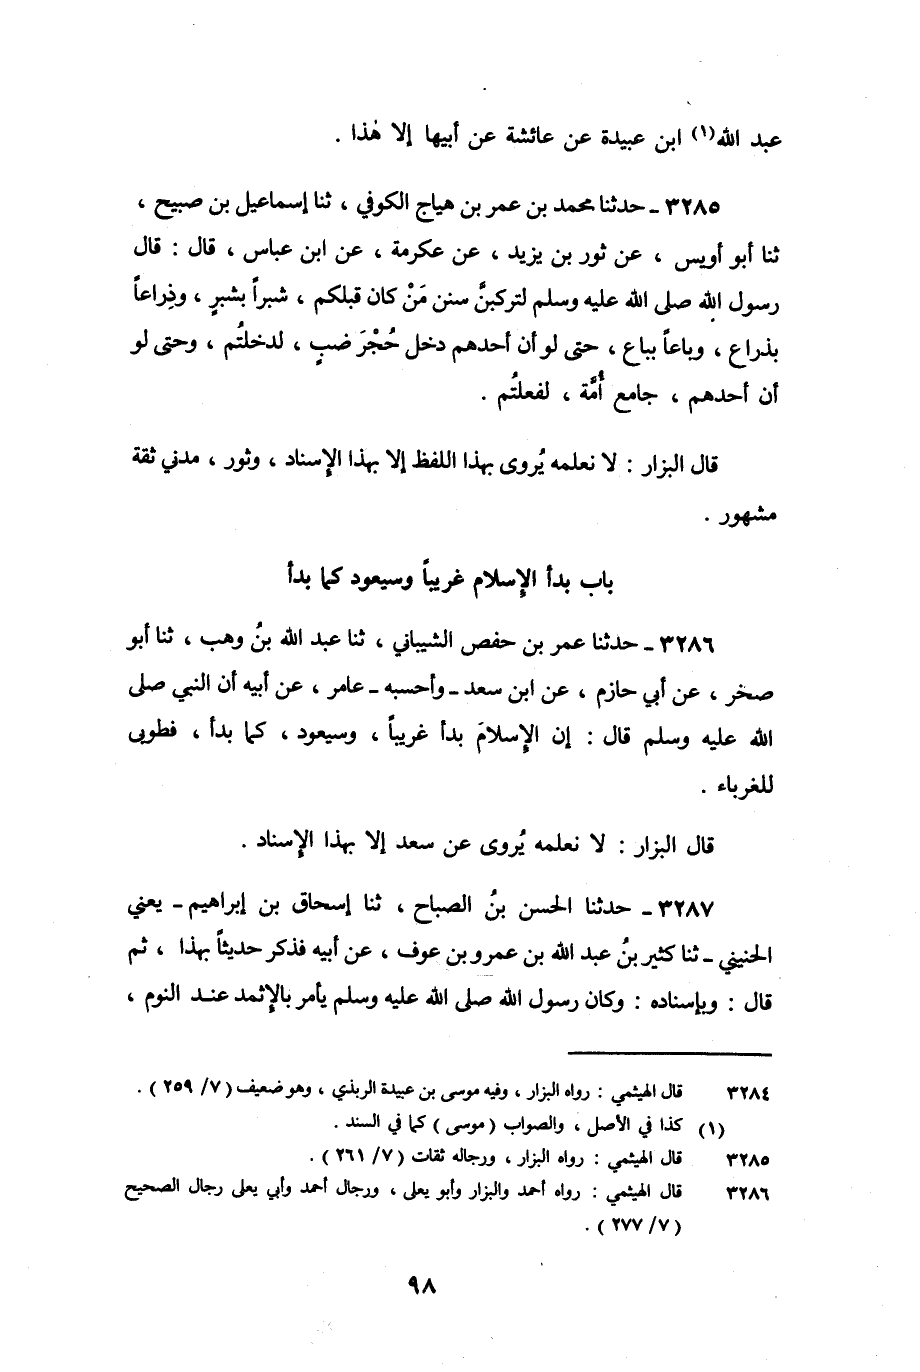 عبد الله(١) ابن عبيدة عن عائشة عن أبيها إلا هٰذا .
٣٢٨٥ ـ حدثنا محمد بن عمر بن هياج الكوفي ، ثنا إسماعيل بن صبيح ،
ثنا أبو أويس ، عن ثور بن يزيد ، عن عكرمة ، عن ابن عباس ، قال : قال
رسول الله صلى الله عليه وسلم لتركبنَّ سنن مَنْ كان قبلكم ، شبراً بشبرٍ ، وذِراعاً
بذراع ، وباعاً بباع ، حتى لو أن أحدهم دخل حُجْرَ ضبٍ ، لدخلتُم ، وحتى لو
أن أحدهم ، جامع أُمَّة ، لفعلتُم .
قال البزار : لا نعلمه يُروى بهذا اللفظ إلا بهذا الإسناد ، وثور ، مدني ثقة
مشهور .
باب بدأ الإسلام غريباً وسيعود كما بدأ
٣٢٨٦ ـ حدثنا عمر بن حفص الشيباني ، ثنا عبد الله بنُ وهب ، ثنا أبو
صخر ، عن أبي حازم ، عن ابن سعد ـ وأحسبه ـ عامر ، عن أبيه أن النبي صلى
الله عليه وسلم قال : إن الإسلامَ بدأ غريباً ، وسيعود ، كما بدأ ، فطوبى
للغرباء .
قال البزار : لا نعلمه يُروى عن سعد إلا بهذا الإسناد .
٣٢٨٧ ـ حدثنا الحسن بنُ الصباح ، ثنا إسحاق بن إبراهيم ـ يعني
الحنيني ـ ثنا كثير بنُ عبد الله بن عمرو بن عوف ، عن أبيه فذكر حديثاً بهذا ، ثم
قال : وبإسناده : وكان رسول الله صلى الله عليه وسلم يأمر بالإثمد عند النوم ،
٣٢٨٤ قال الهيثمي : رواه البزار ، وفيه موسى بن عبيدة الربذي ، وهو ضعيف (٧/ ٢٥٩ ) .
(١) كذا في الأصل ، والصواب ( موسى ) كما في السند .
٣٢٨٥ قال الهيثمي : رواه البزار ، ورجاله ثقات (٧/ ٢٦١ ) .
٣٢٨٦ قال الهيثمي : رواه أحمد والبزار وأبو يعلى ، ورجال أحمد وأبي يعلى رجال الصحيح
(٧/ ٢٧٧ ) .
٩٨